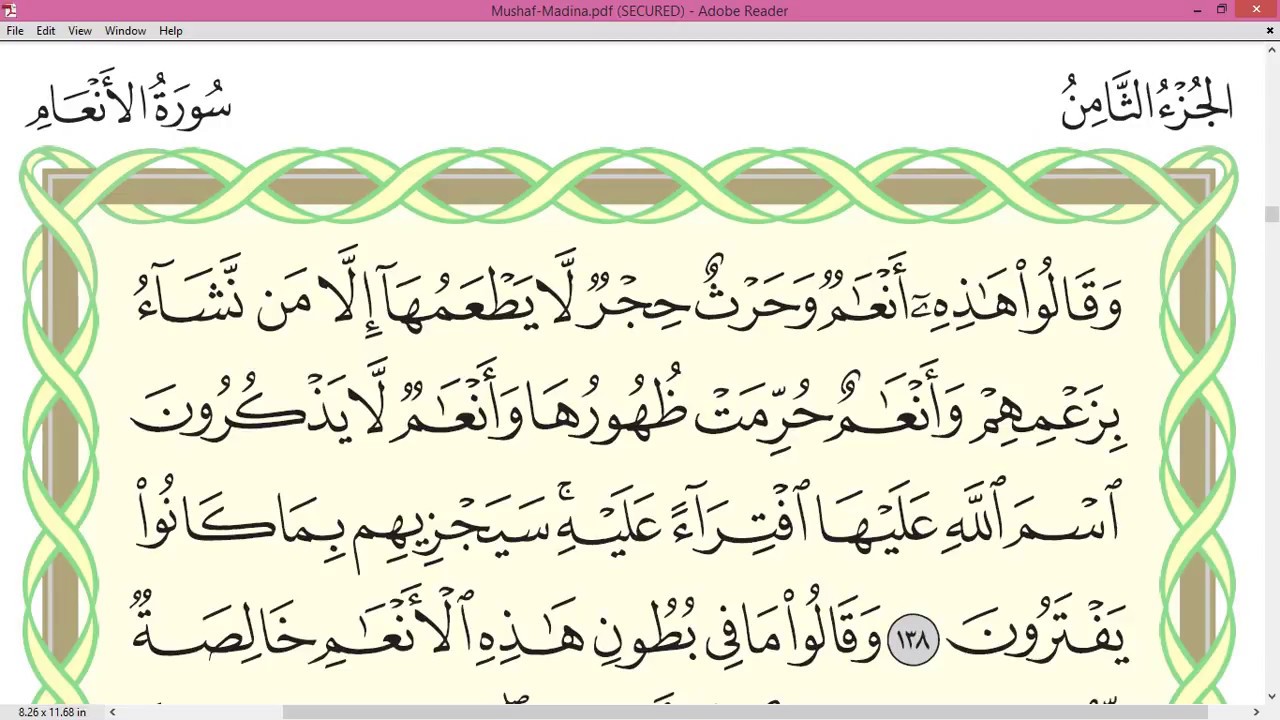 Mushaf-Madina.pdf (SECURED) - Adobe Reader
File Edit View Window Help
الجُزْءُ الثَّامِنُ
سُورَةُ الأَنْعَامِ
وَقَالُوا۟ هَـٰذِهِۦٓ أَنْعَـٰمٌۭ وَحَرْثٌ حِجْرٌۭ لَّا يَطْعَمُهَآ إِلَّا مَن نَّشَآءُ
بِزَعْمِهِمْ وَأَنْعَـٰمٌ حُرِّمَتْ ظُهُورُهَا وَأَنْعَـٰمٌۭ لَّا يَذْكُرُونَ
ٱسْمَ ٱللَّهِ عَلَيْهَا ٱفْتِرَآءً عَلَيْهِ ۚ سَيَجْزِيهِم بِمَا كَانُوا۟
يَفْتَرُونَ ١٣٨ وَقَالُوا۟ مَا فِى بُطُونِ هَـٰذِهِ ٱلْأَنْعَـٰمِ خَالِصَةٌۭ
8.26 x 11.68 in